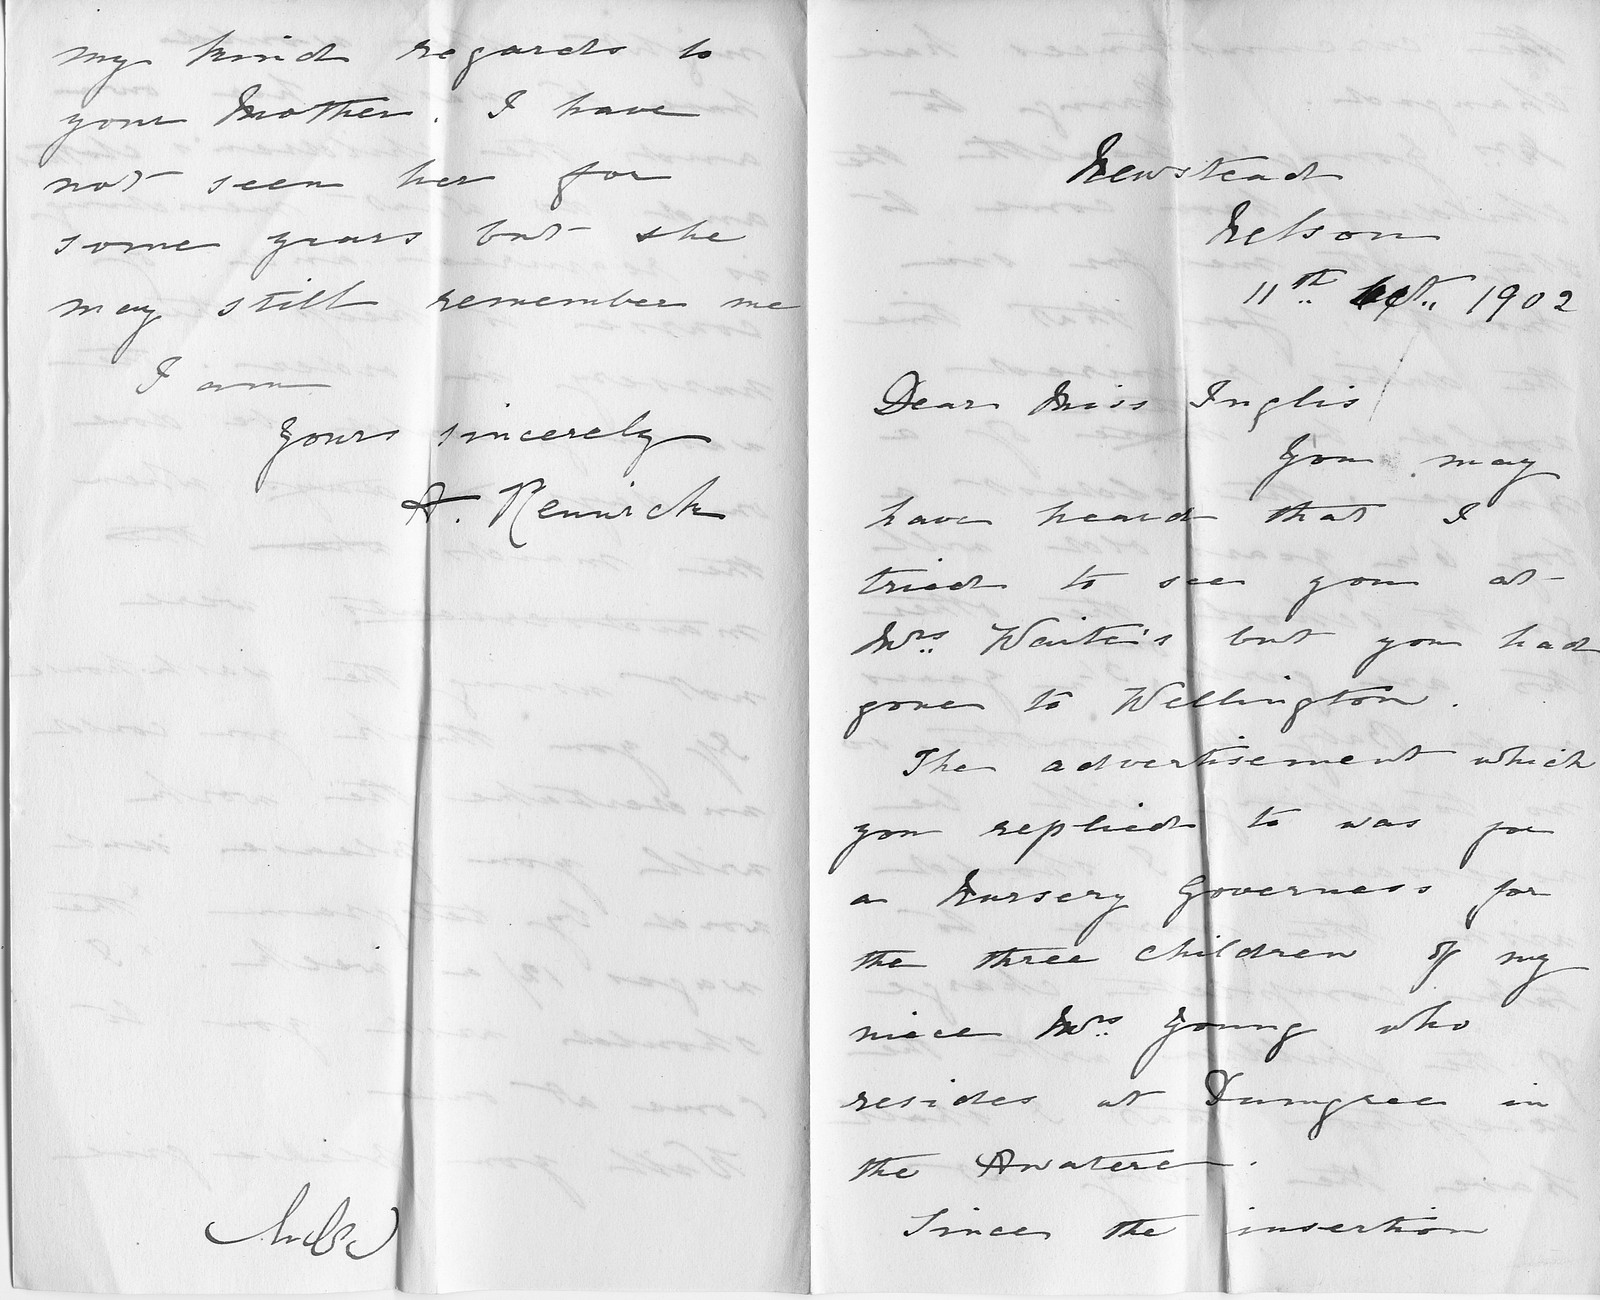 Newstead
Nelson
11th 1902
Dear Miss Inglis
You may
have heard that I
tried to see you at
Mrs Waite's but you had
gone to Wellington.
The advertisement which
you replied to was for
a Nursery Governess for
the three children of my
niece Mrs Young who
resides at Dumgree in
the Awatere.
Since the insertion
my kind regards to
your Mother. I have
not seen her for
some years but she
may still remember me
I am
Yours sincerely
A. Renwick